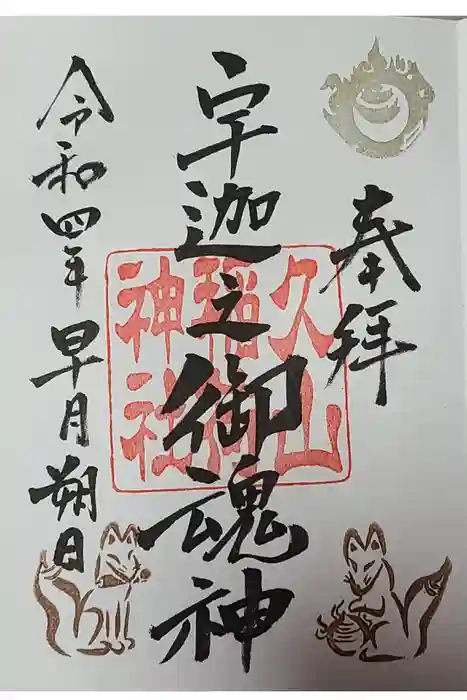 奉拝
宇迦之御魂神
久山
稲荷
神社
令和四年早月朔日